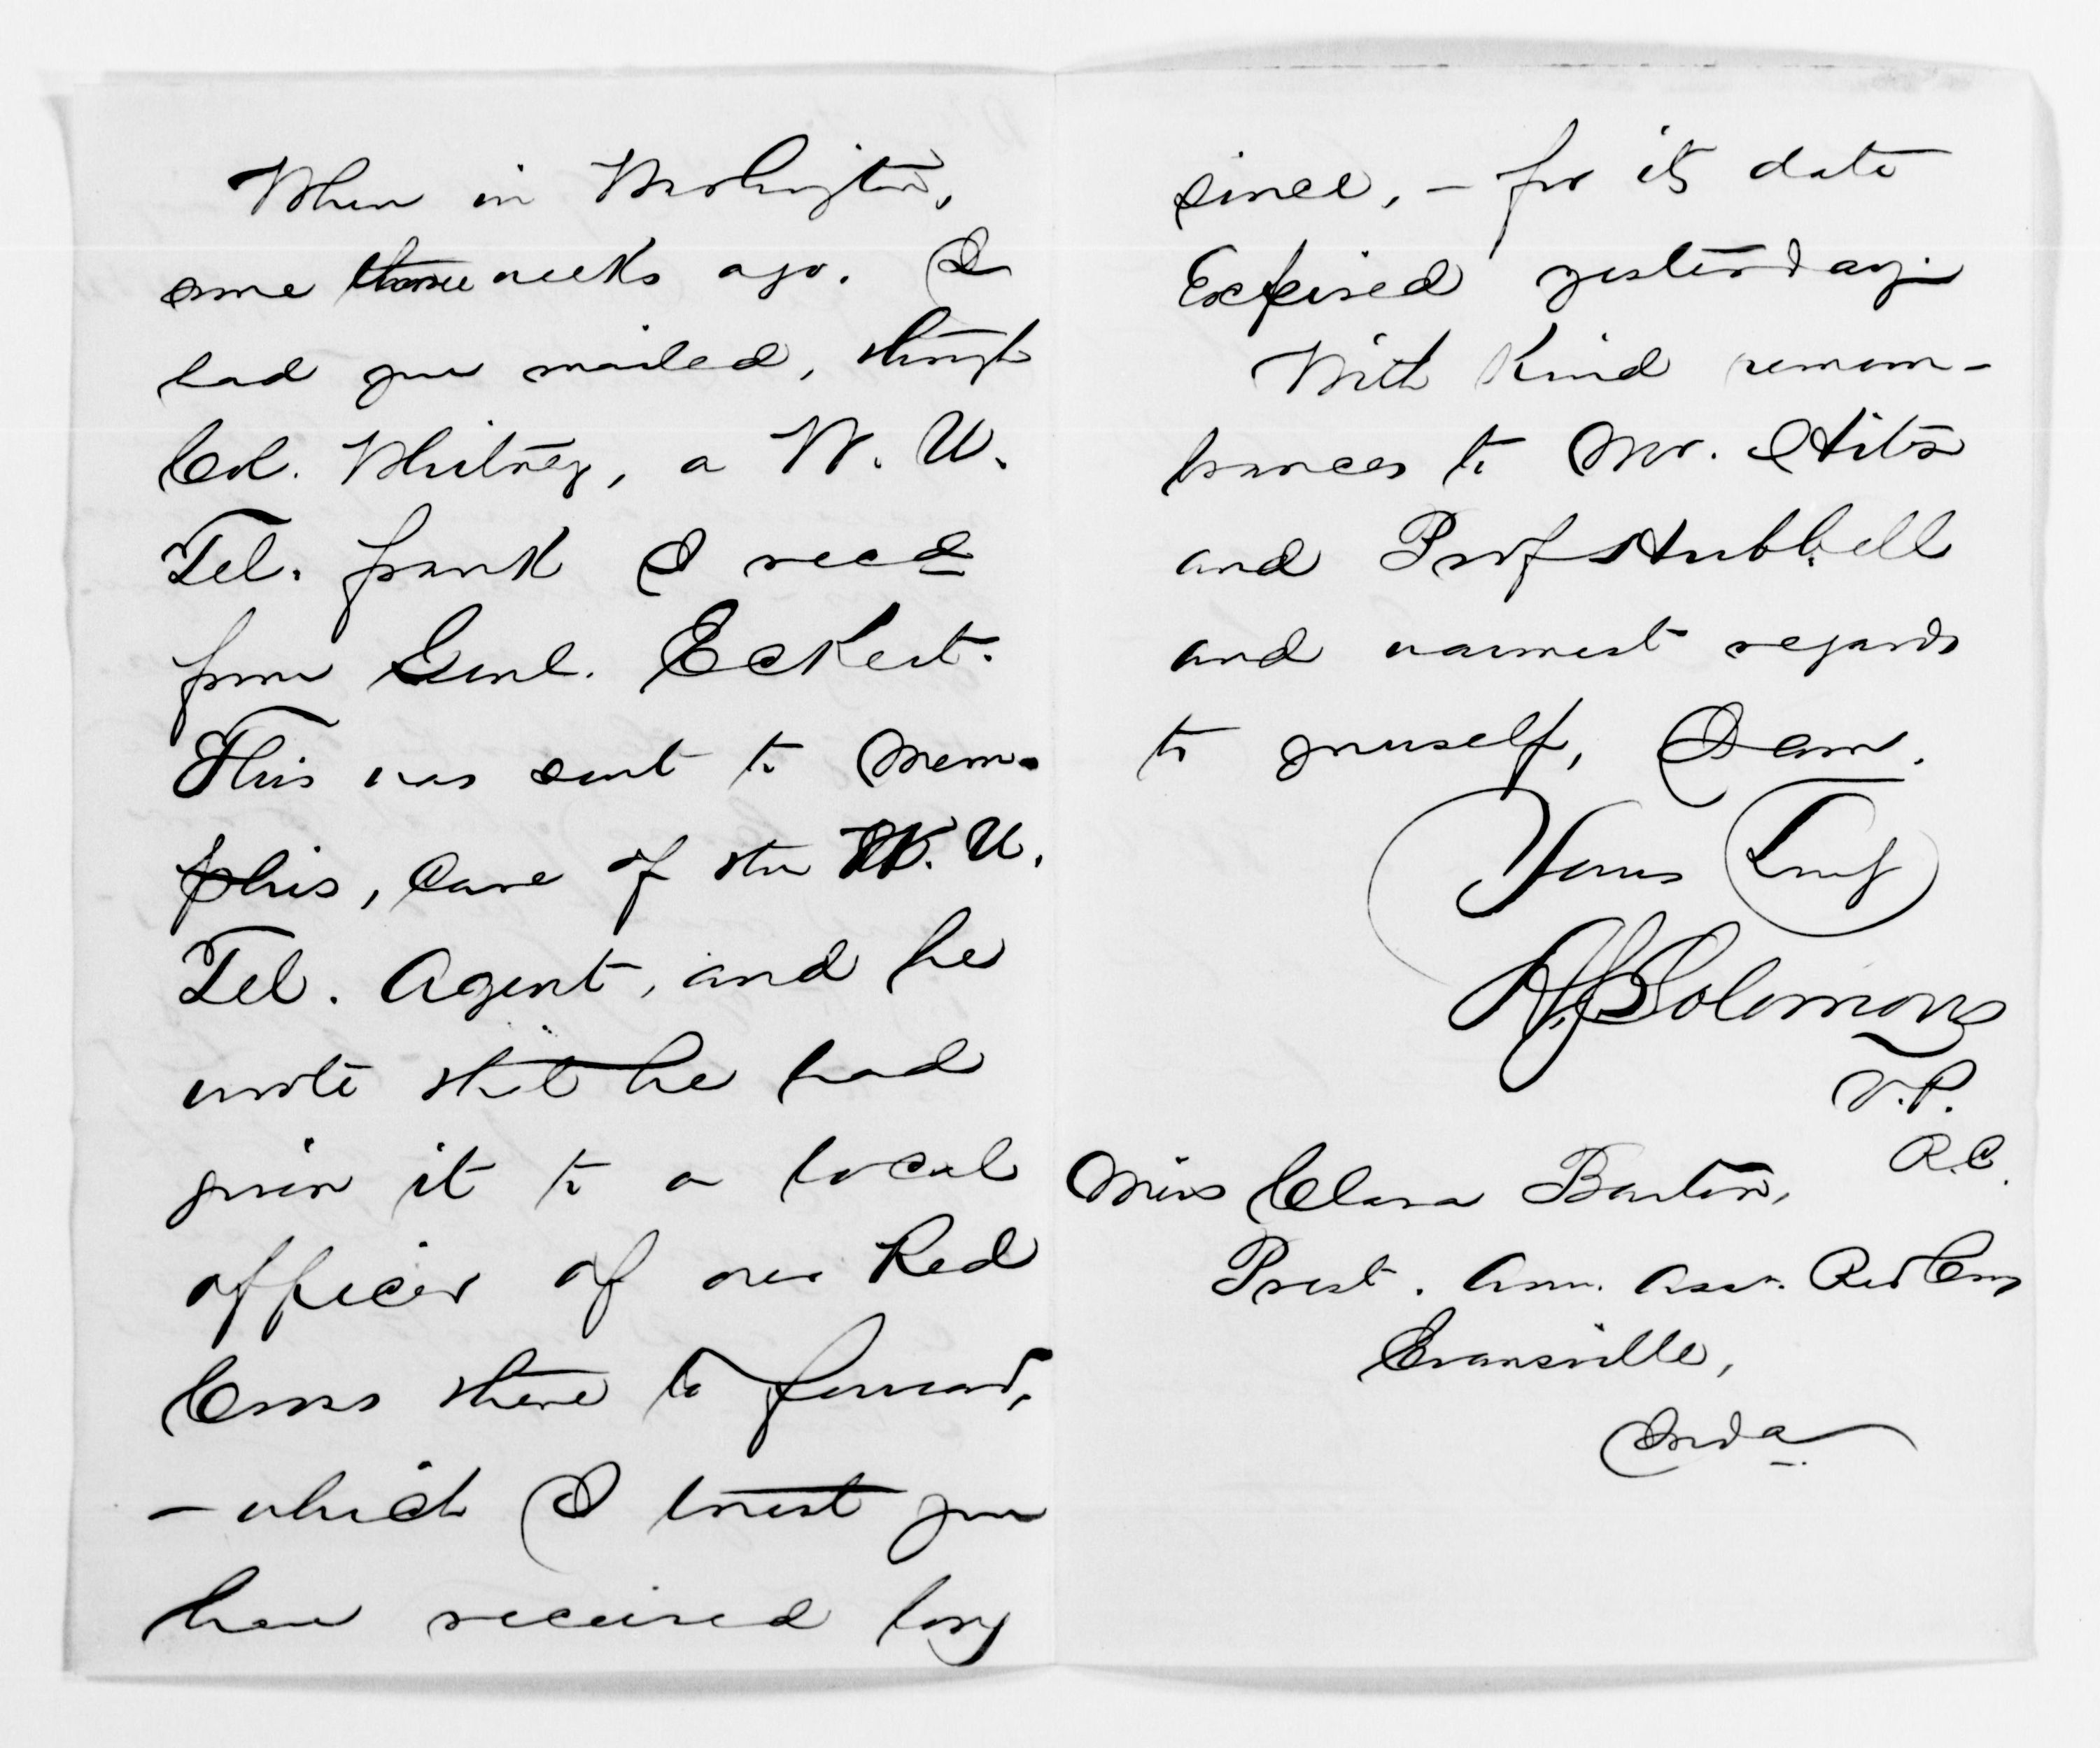 When in Washington,
some three weeks ago. I
had you mailed, through
Col. Whitney, a W. U.
Tel. frank I recd
from Genl. Eckert.
This was sent to Mem-
phis, Care of the W. U.
Tel. Agent, and he
wrote that he had
given it to a local
officer of our Red
Cross there to forward,
- which I trust you
have received long
since, - for its date
Expired yesterday.
With Kind remem-
brances to Mr. Hitz
and Prof Hubbell
and warmest regards
to yourself, I am.
Yours Truly
A.S. Solomons
V.P.
R.C.
Miss Clara Barton,
Prest. Am. Assn. Red Cross
Evansville,
Inda.